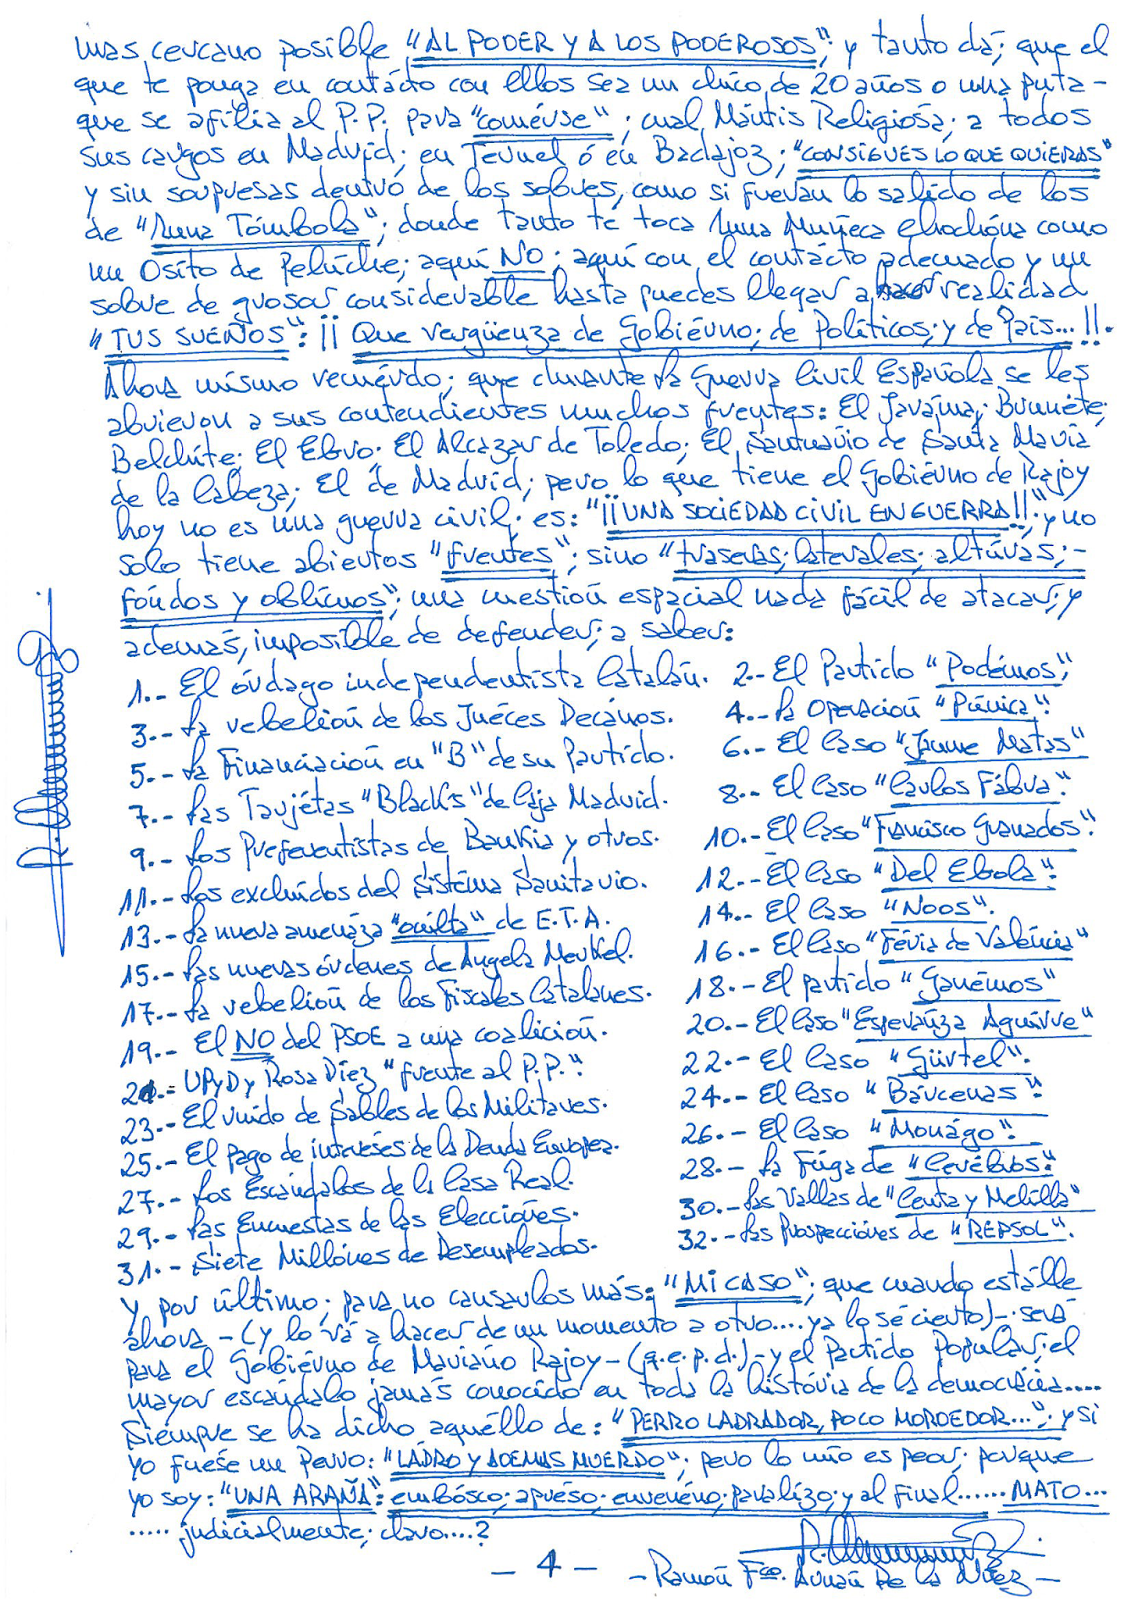 mas cercano posible "AL PODER Y A LOS PODEROSOS"; y tanto dá; que el
que te ponga en contácto con ellos sea un chico de 20 años o una puta-
que se afilia al P.P. para "comérse"; cual Mántis Religiosa; a todos
sus cargos en Madrid; en Teruel ó en Badajoz; "CONSIGUES LO QUE QUIERAS"
y sin sorpresas dentro de los sobres, como si fueran lo salido de los
de "Una Tómbola"; donde tanto te toca una Muñeca Chochóna como
un Osito de Pelúche; aquí NO; aquí con el contácto adecuado y un
sobre de grosor considerable hasta puedes llegar a hacer realidad
"TUS SUEÑOS": ¡¡ Que vergüenza de Gobiérno; de Políticos; y de País...!!.
Ahora mismo recuérdo; que durante la Guerra Civil Española se les
abrieron a sus contendientes muchos frentes: El Jaráma; Brunéte;
Belchíte; El Ebro; El Alcázar de Toledo; El Santuário de Santa María
de la Cabeza; El de Madrid; pero lo que tiene el Gobiérno de Rajoy
hoy no es una guerra civil; es: "¡¡UNA SOCIEDAD CIVIL EN GUERRA!!"; y no
solo tiene abiertos "frentes"; sino "traseras; laterales; altúras;-
fóndos y oblícuos"; una cuestión espacial nada fácil de atacar; y
además, imposible de defender; a saber:
1.- El órdago independentista Catalán. 2.- El Partido "Podémos";
3.- La rebelión de los Juéces Decános. 4.- La Operación "Púnica".
5.- La Financiación en "B" de su Partído. 6.- El Caso "Jaume Matas"
7.- Las Tarjétas "Blacks" de Caja Madrid. 8.- El Caso "Carlos Fábra".
9.- Los Preferentistas de Bankia y otros. 10.- El Caso "Francisco Granados".
11.- Los excluídos del Sistéma Sanitario. 12.- El Caso "Del Ebola".
13.- La nueva amenáza "ocúlta" de E.T.A. 14.- El Caso "Noos".
15.- Las nuevas órdenes de Angela Merkel. 16.- El Caso "Féria de Valéncia"
17.- La rebelión de los Fiscales Catalanes. 18.- El partido "Ganémos"
19.- El NO del PSOE a una coalición. 20.- El Caso "Esperánza Aguirre"
21.- UPyD y Rosa Díez "frente al P.P.". 22.- El Caso "Gürtel".
23.- El ruido de Sables de los Militares. 24.- El Caso "Bárcenas".
25.- El pago de interéses de la Deuda Europea. 26.- El Caso "Monágo".
27.- Los Escándalos de la Casa Real. 28.- La Fúga de "Cerébros".
29.- Las Encuestas de las Elecciónes. 30.- Las Vallas de "Ceuta y Melilla"
31.- Siete Millónes de Desempleados. 32.- Las Prospecciónes de "REPSOL".
Y por último; para no cansarlos más: "MI CASO"; que cuando estálle
ahora -(y lo vá a hacer de un momento a otro....ya lo sé ciento)-; será
para el Gobiérno de Mariáno Rajoy-(q.e.p.d.)-y el Partido Popular; el
mayor escándalo jamás conocido en toda la história de la democrácia.....
Siémpre se ha dicho aquéllo de: "PERRO LADRADOR, POCO MORDEDOR..."; y si
yo fuése un Perro: "LADRO Y ADEMAS MUERDO"; pero lo mío es peor; porque
yo soy: "UNA ARAÑA": embósco; apréso; envenéno; paralízo; y al final......MATO...
..... judicialmente; claro....?
- 4 -
- Ramón Fco. Arnán De la Núez -